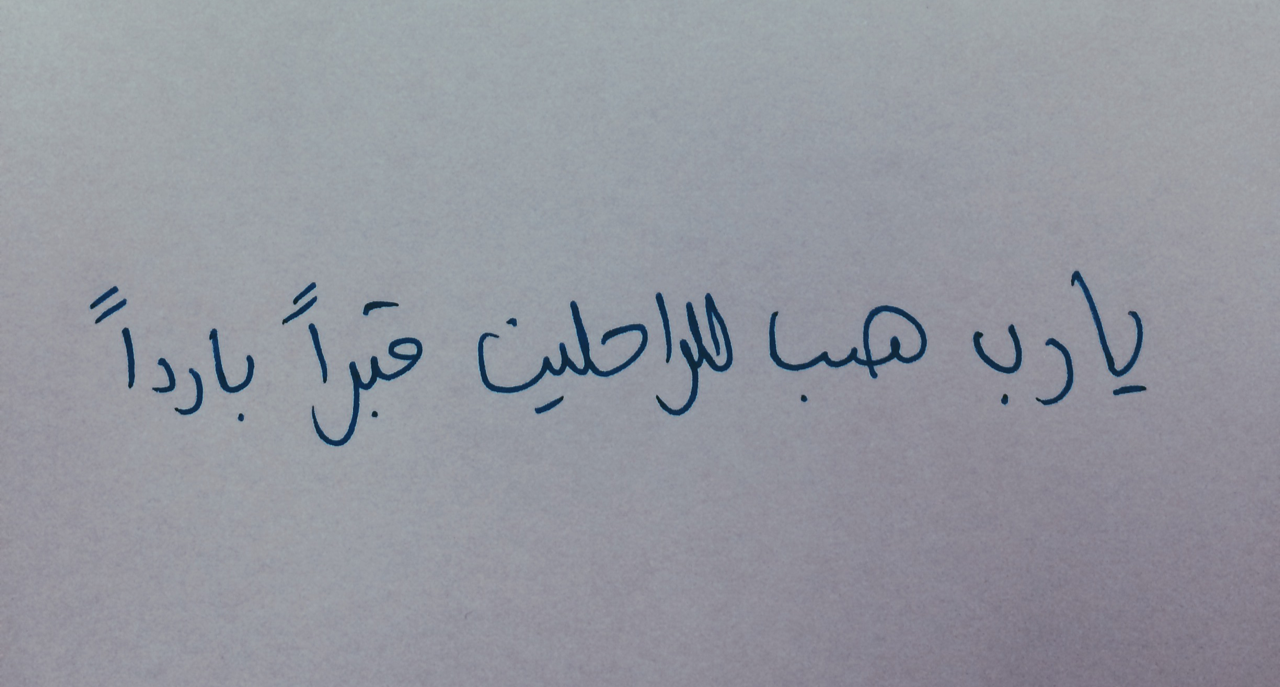 يارب هب للراحلين قبراً بارداً